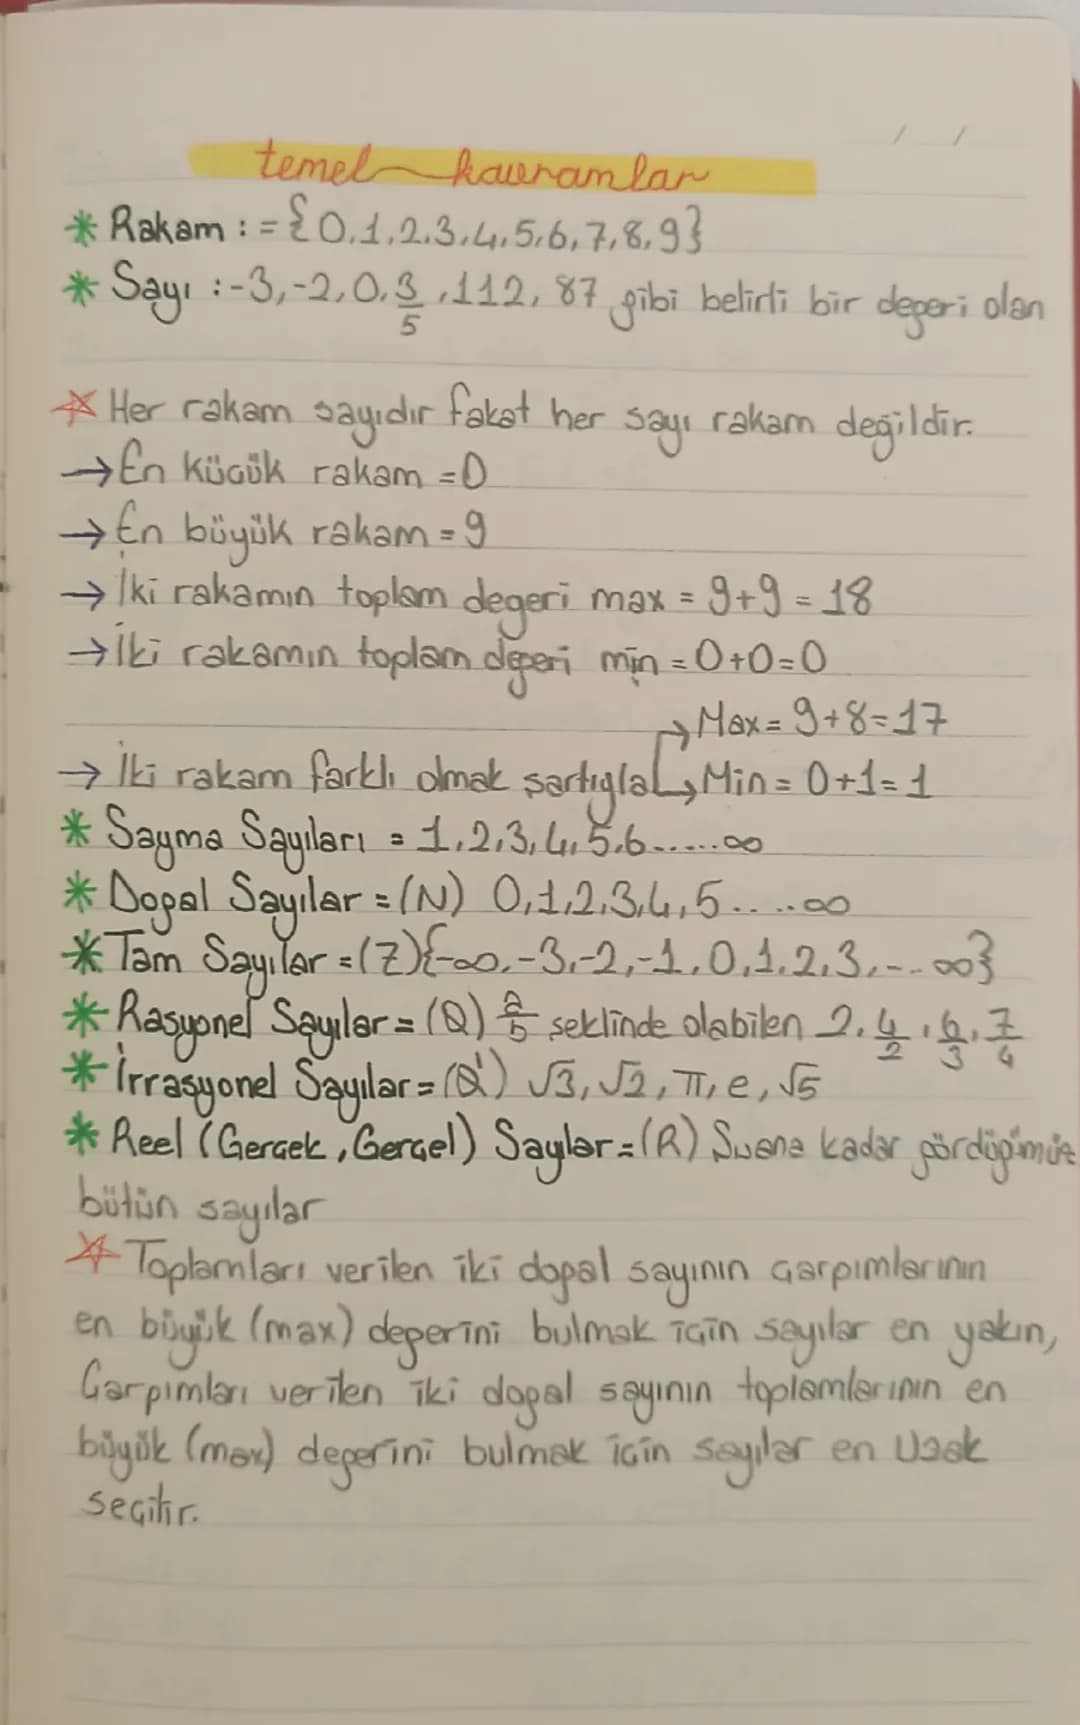 temel kavramlar
* Rakam : = {0,1,2,3,4,5,6,7,8,9}
* Sayı : -3,-2,0,3/5,112,87 gibi belirli bir değeri olan
☆ Her rakam sayıdır fakat her sayı rakam değildir.
→ En küçük rakam = 0
→ En büyük rakam = 9
→ İki rakamın toplam değeri max = 9+9 = 18
→ İki rakamın toplam değeri min = 0+0=0
→ Max = 9+8=17
→ İki rakam farklı olmak şartıyla → Min = 0+1=1
* Sayma Sayıları = 1,2,3,4,5,6......∞
* Dogal Sayılar = (N) 0,1,2,3,4,5.....∞
* Tam Sayılar = (Z){-∞,-3,-2,-1,0,1,2,3,....∞}
* Rasyonel Sayılar = (Q) a/b seklinde olabilen 2,4/2,6/3,7/4
* İrrasyonel Sayılar = (Q') √3,√2,π,e,√5
* Reel (Gerçek, Gerçel) Saylar = (R) Şuana kadar gördüğümüz
bütün sayılar
☆ Toplamları verilen iki dogal sayının çarpımlarının
en büyük (max) degerini bulmak için sayılar en yakın,
Çarpımları verilen iki dogal sayının toplamlarının en
büyük (max) degerini bulmak için sayılar en uzak
seçilir.